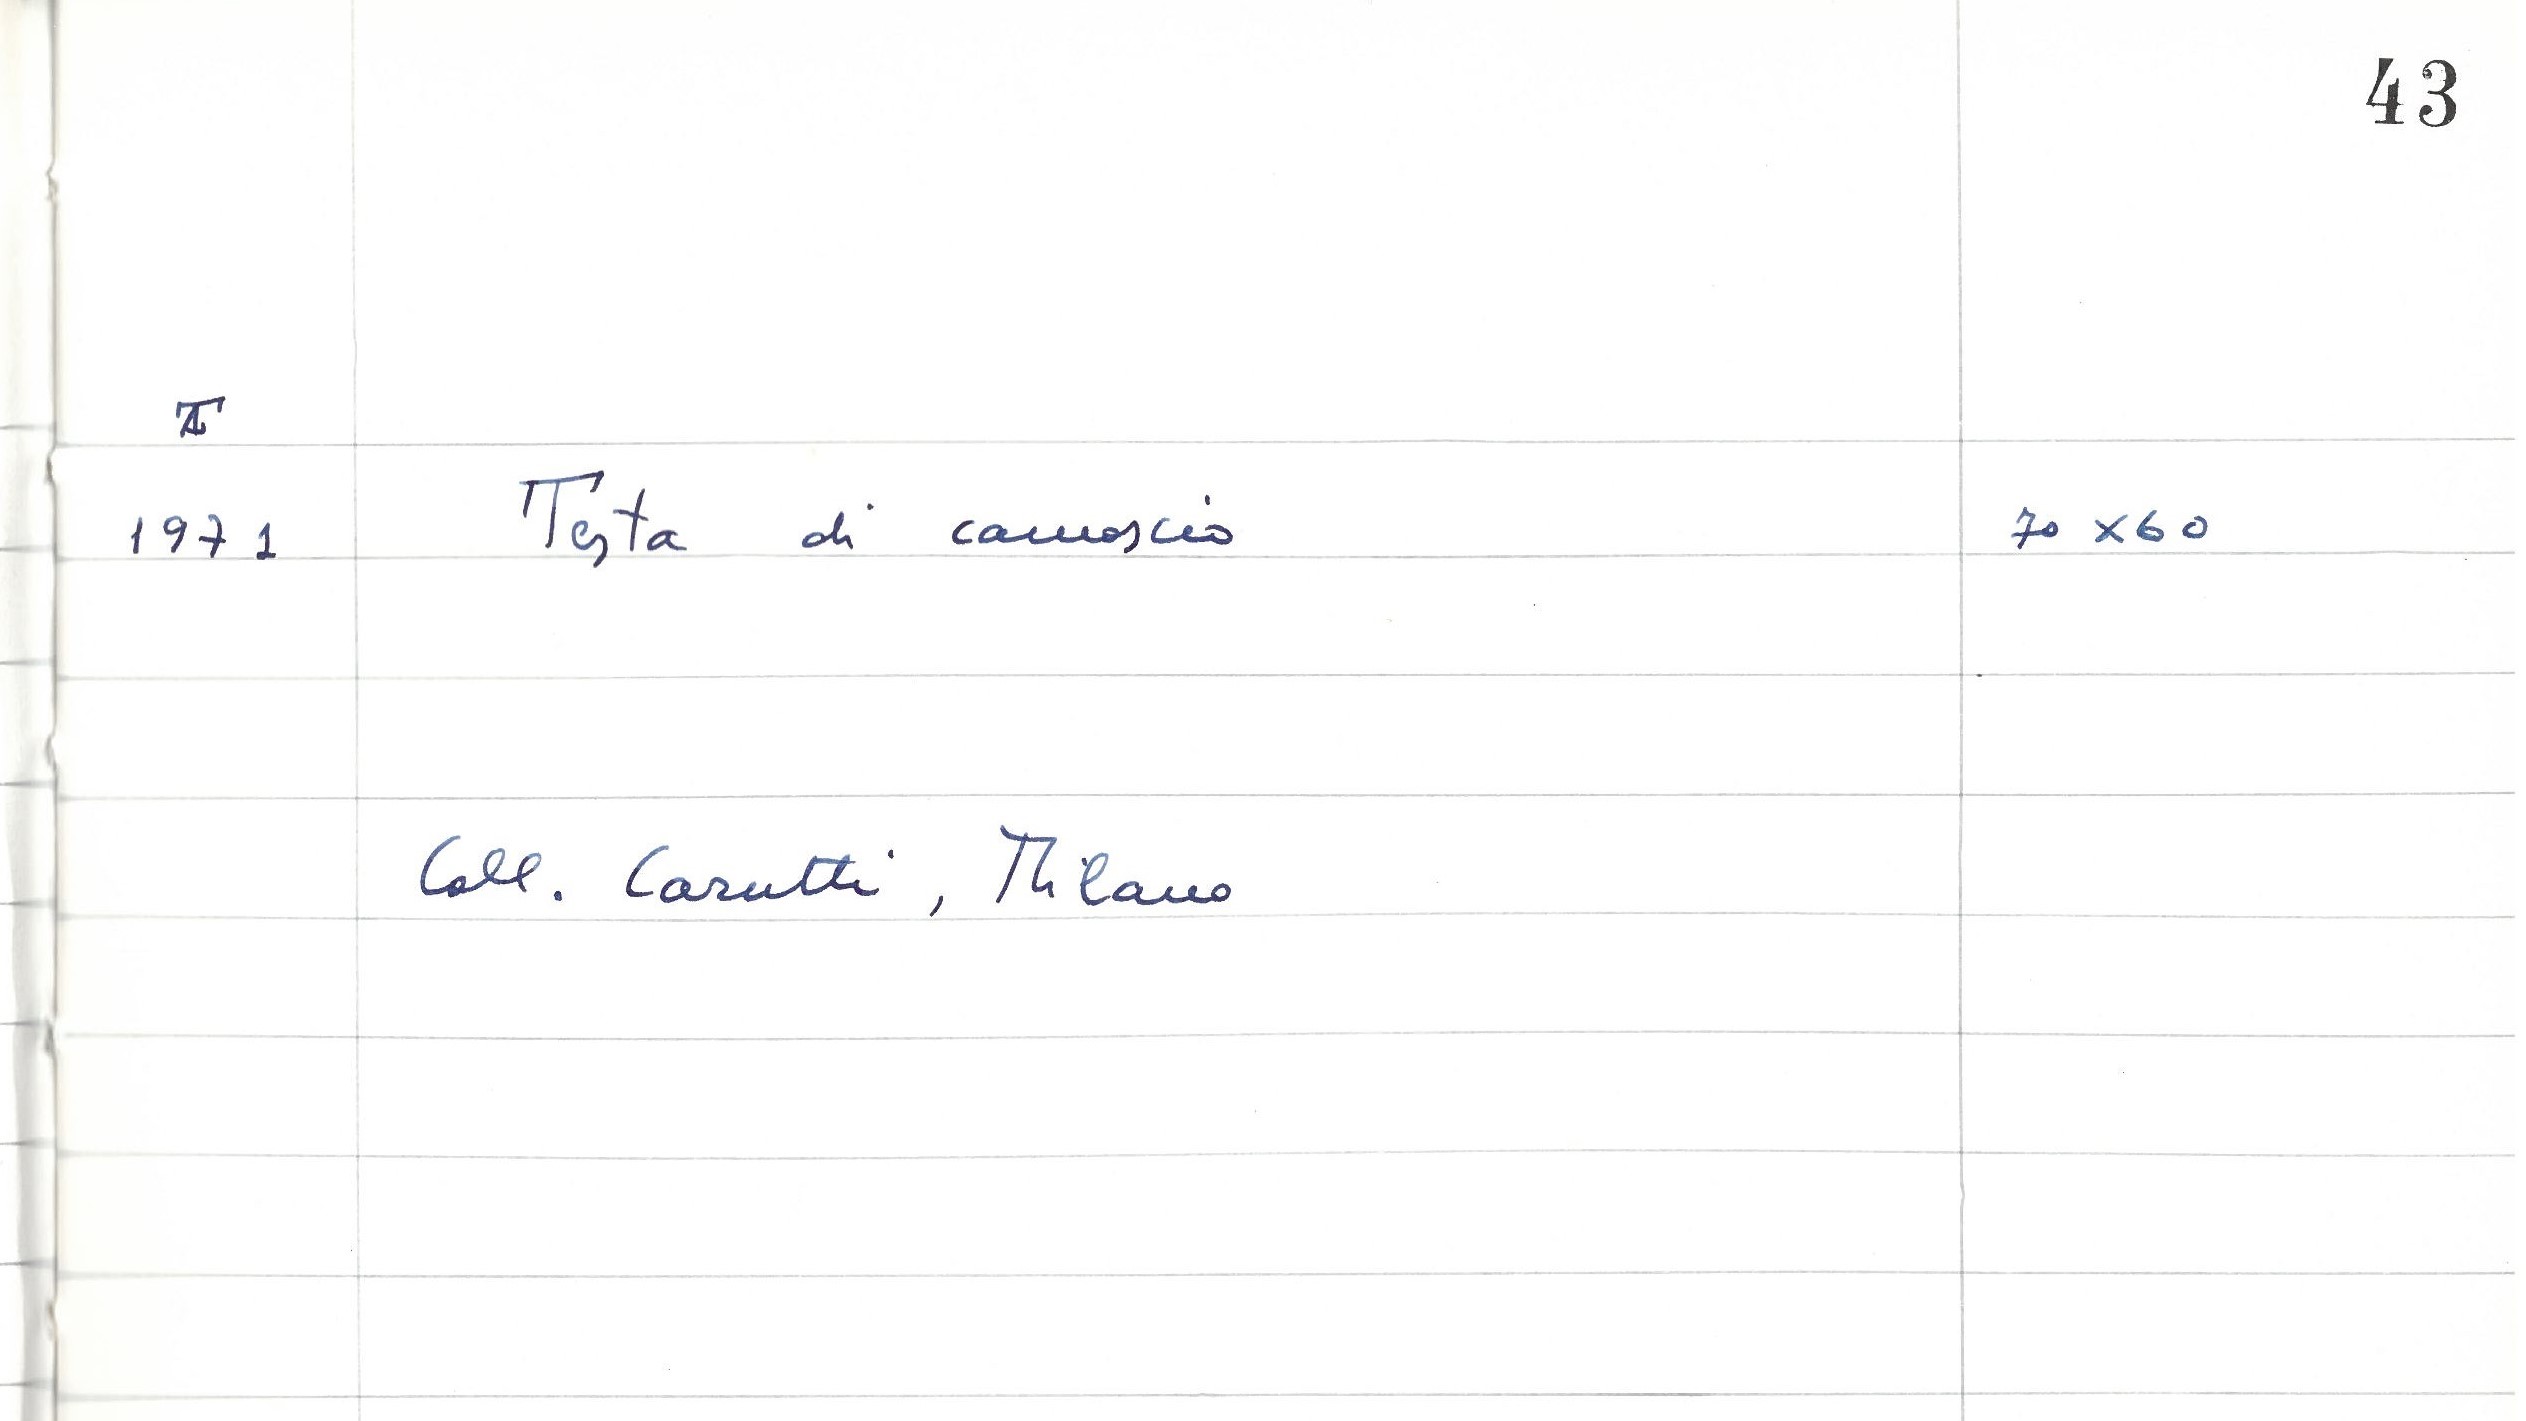 43
1971 Testa di camoscio 70 x 60
Coll. Carutti, Milano